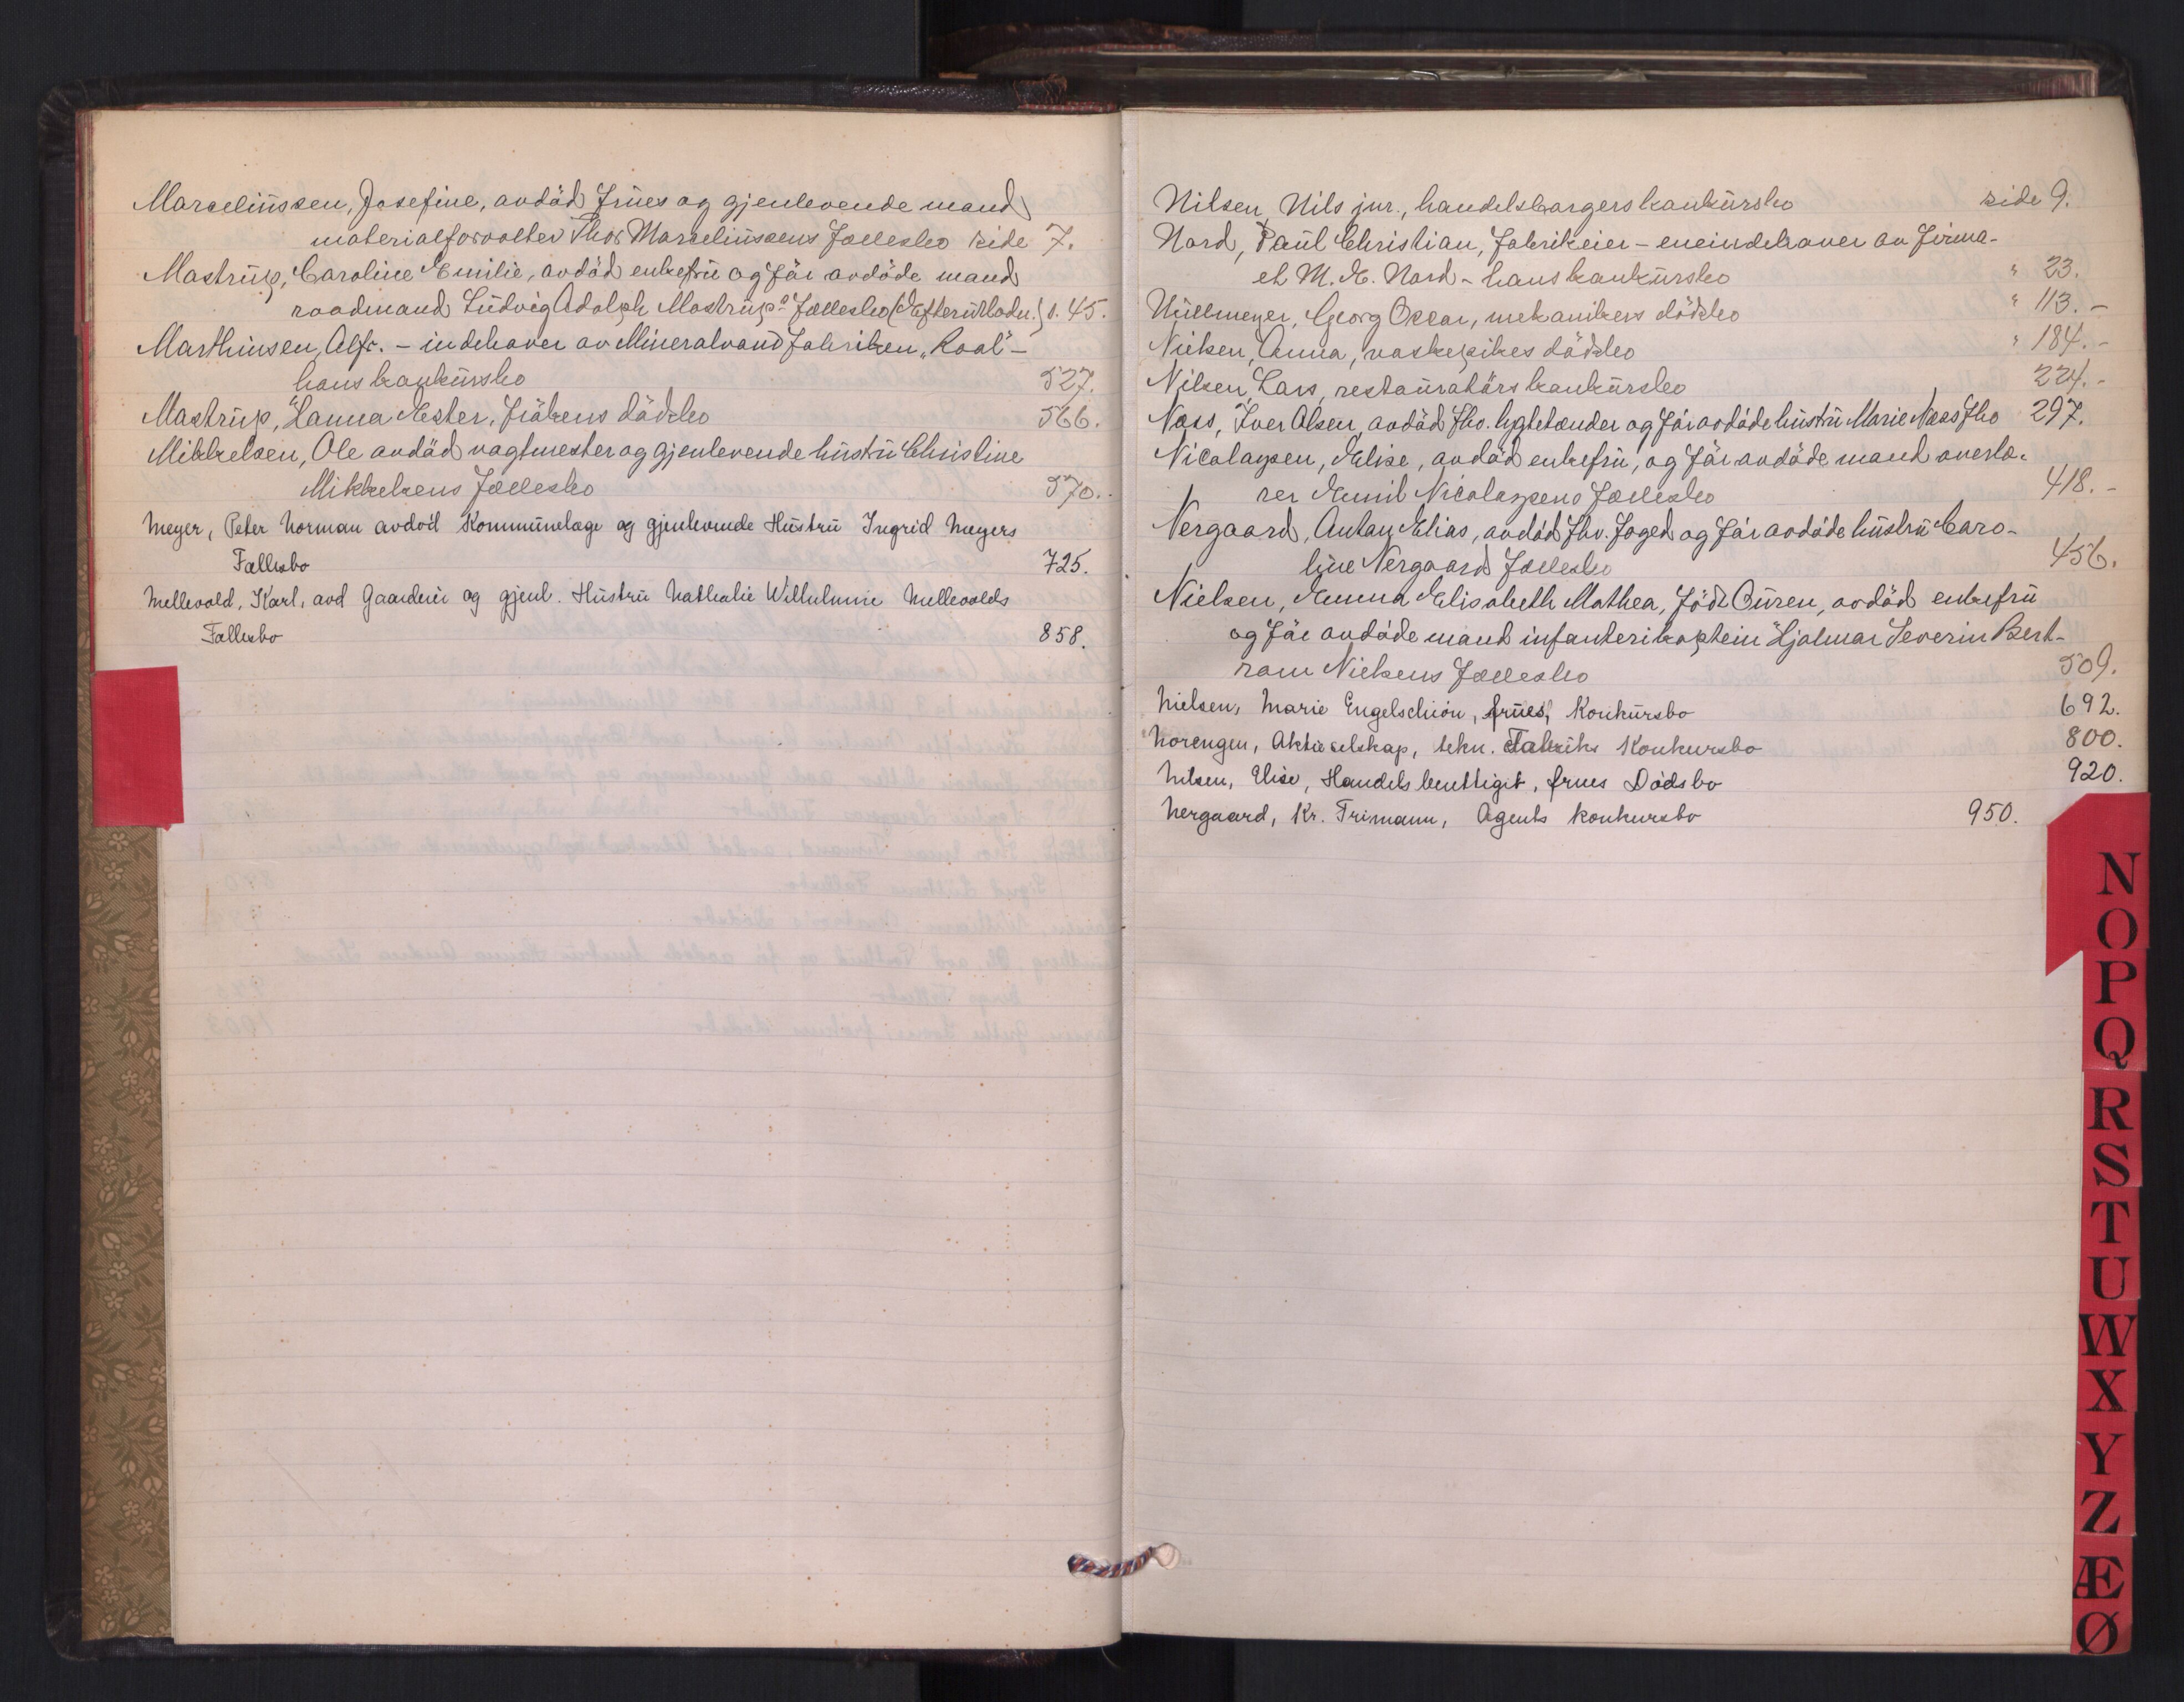 Marceliussen, Josefine, avdöd frues og gjenlevende mand
materialforvalter Thor Marceliussens fællesbo side 7.
Mastrup, Caroline Emilie, avdöd enkefru og för avdöde mand
raadmand Ludvig Adolph Mastrups fællesbo (Efterutlodn.) s. 45.
Marthinsen, Alfr. – indehaver av Mineralvandfabriken "Roal" –
hans konkursbo 527.
Mastrup, Hanna Ester, frökens dödsbo 566.
Mikkelsen, Ole avdöd vagtmester og gjenlevende hustru Christine
Mikkelsens fællesbo 570.
Meyer, Peter Norman avdöd Kommunelæge og gjenlevende Hustru Ingrid Meyers
Fællesbo 725.
Mellevold, Karl, avd Gaardeier og gjenl. Hustru Nathalie Wilhelmine Mellevolds
Fællesbo 858.
Nilsen, Nils jnr., handelsborgers konkursbo side 9.
Nord, Paul Christian, fabrikeier – eneindehaver av firma-
et M. E. Nord – hans konkursbo " 23.
Nüllmeyer, Georg Oscar, mekanikers dödsbo " 113.–
Nielsen, Anna, vaskepikes dödsbo " 184.–
Nilsen, Lars, restauratörs konkursbo 224.–
Næss, Iver Olsen, avdöd fhv. lygtetænder og för avdöde hustru Marie Næss fbo 297.
Nicolaysen, Elise, avdöd enkefru, og för avdöde mand overlæ-
rer Emil Nicolaysens fællesbo 418.–
Nergaard, Anton Elias, avdöd fhv. foged og för avdöde hustru Caro-
line Nergaard fællesbo 456.
Nielsen, Emma Elisabeth Mathea, född Buren, avdöd enkefru
og för avdöde mand infanterikaptein Hjalmar Severin Bert-
ram Nielsens fællesbo 509.
Nielsen, Marie Engelschiön, frues, Konkursbo 692.
Norengen, Aktieselskap, tekn. Fabriks Konkursbo 800.
Nilsen, Elise, Handelsberettiget, frues Dödsbo 920.
Nergaard, Kr. Trimann, Agents konkursbo 950.
N
O
P
Q
R
S
T
U
W
X
Y
Z
Æ
Ø